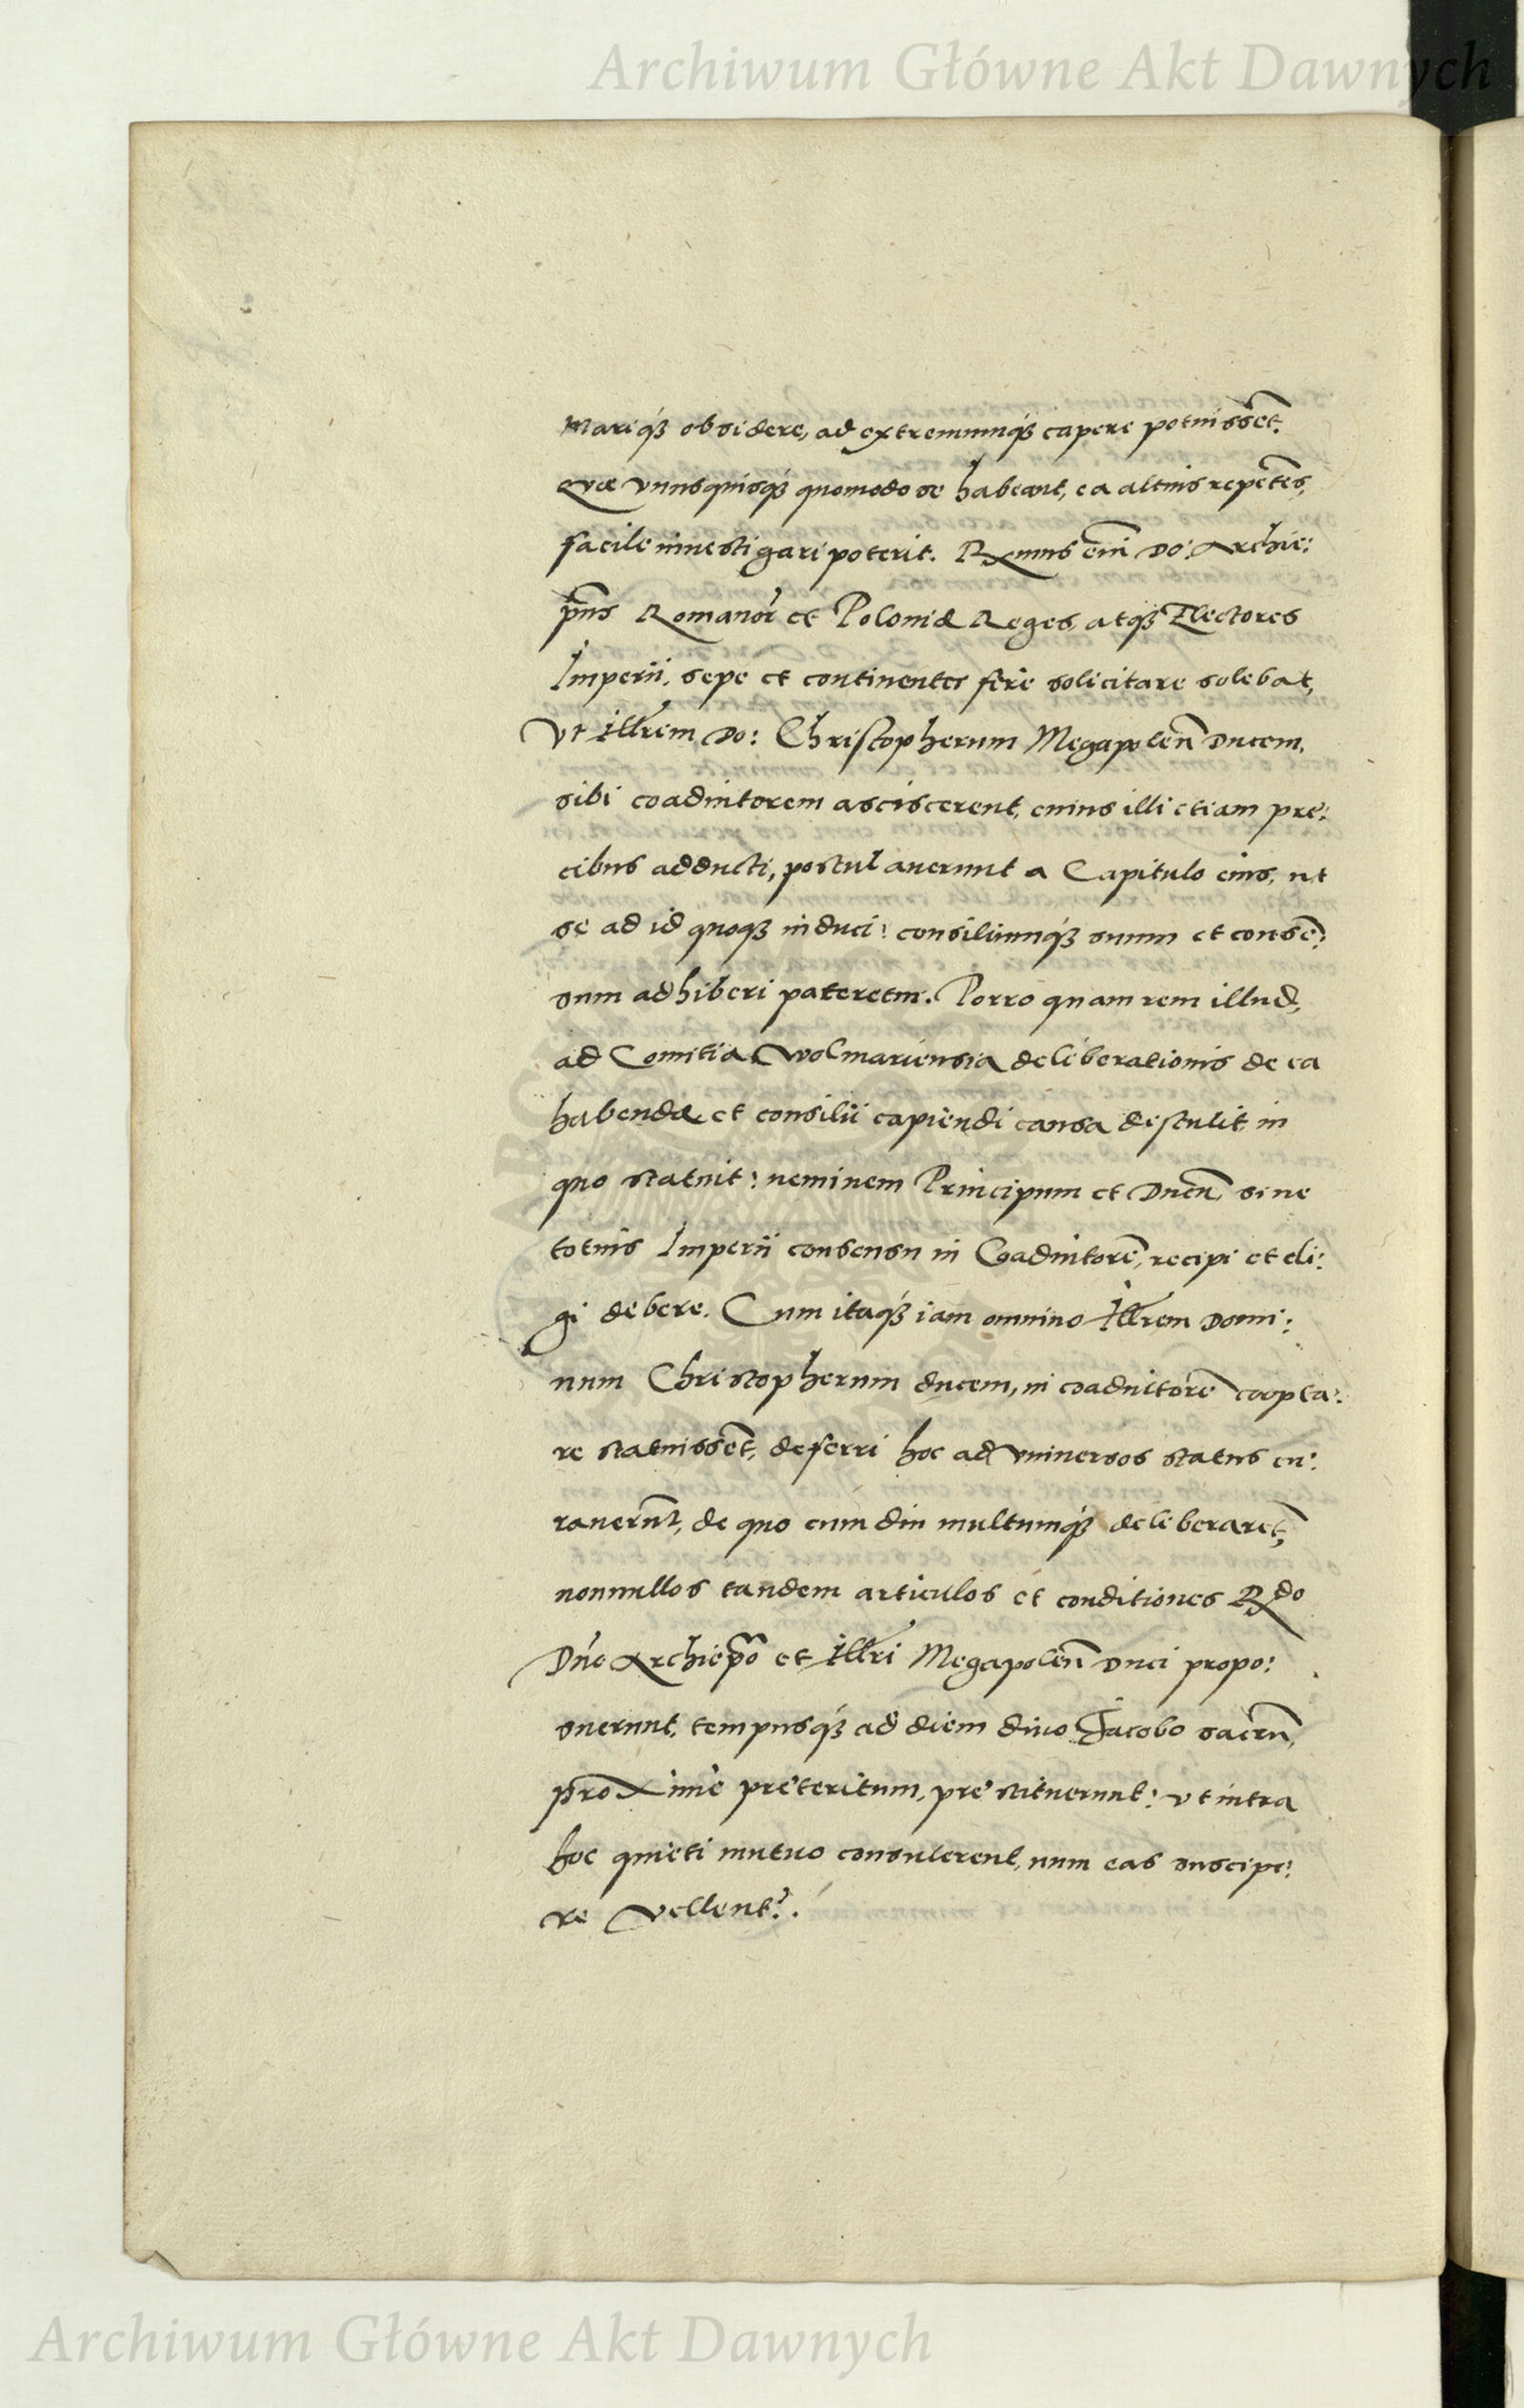 Archiwum Główne Akt Dawnych
mariq₃ obsidere, ad extremumq₃ capere potuissēt.
Quæ unusquisq₃ quomodo se habeant, ea altius repetētes,
facile inuestigari poterit. Rx̄mus em̄ Do: Archie:
pūs Romanor et Poloniæ Reges, atq₃ Electores
Imperii, sepe et continenter fere solicitare solebat,
Vt Illrem Do: Christopherum Megapoleñ Ducem,
sibi coadiutorem asciscerent, cuius illi etiam pre:
cibus adducti, postulauerunt a Capitulo eius, ut
se ad id quoq₃ induci: consiliumq₃ suum et consē:
sum adhiberi pateretur. Porro quam rem illud,
ad Comitia Wolmariensia deliberationis de ea
habendæ et consilii capiendi causa destulit, in
quo statuit: neminem Principum et Ducū sine
totius Imperii consensu in Coadiutorē, recipi et eli:
gi debere. Cum itaq₃ iam omnino Illrem Domi:
num Christopherum ducem, in coadiutorē coopta:
re statuissēt, deferri hoc ad vniuersos status cu:
rauerūt, de quo cum diu multumq₃ deliberarēt,
nonnullos tandem articulos et conditiones Rx̄do
Dño Archiep̄o et Illri Megapoleñ Duci propo:
suerunt, tempusq₃ ad diem diuo Jacobo sacrū,
proxime preteritum, prestituerunt: vt intra
hoc quieti mutuo consulerent, num eas suscipe:
re vellent?.
Archiwum Główne Akt Dawnych